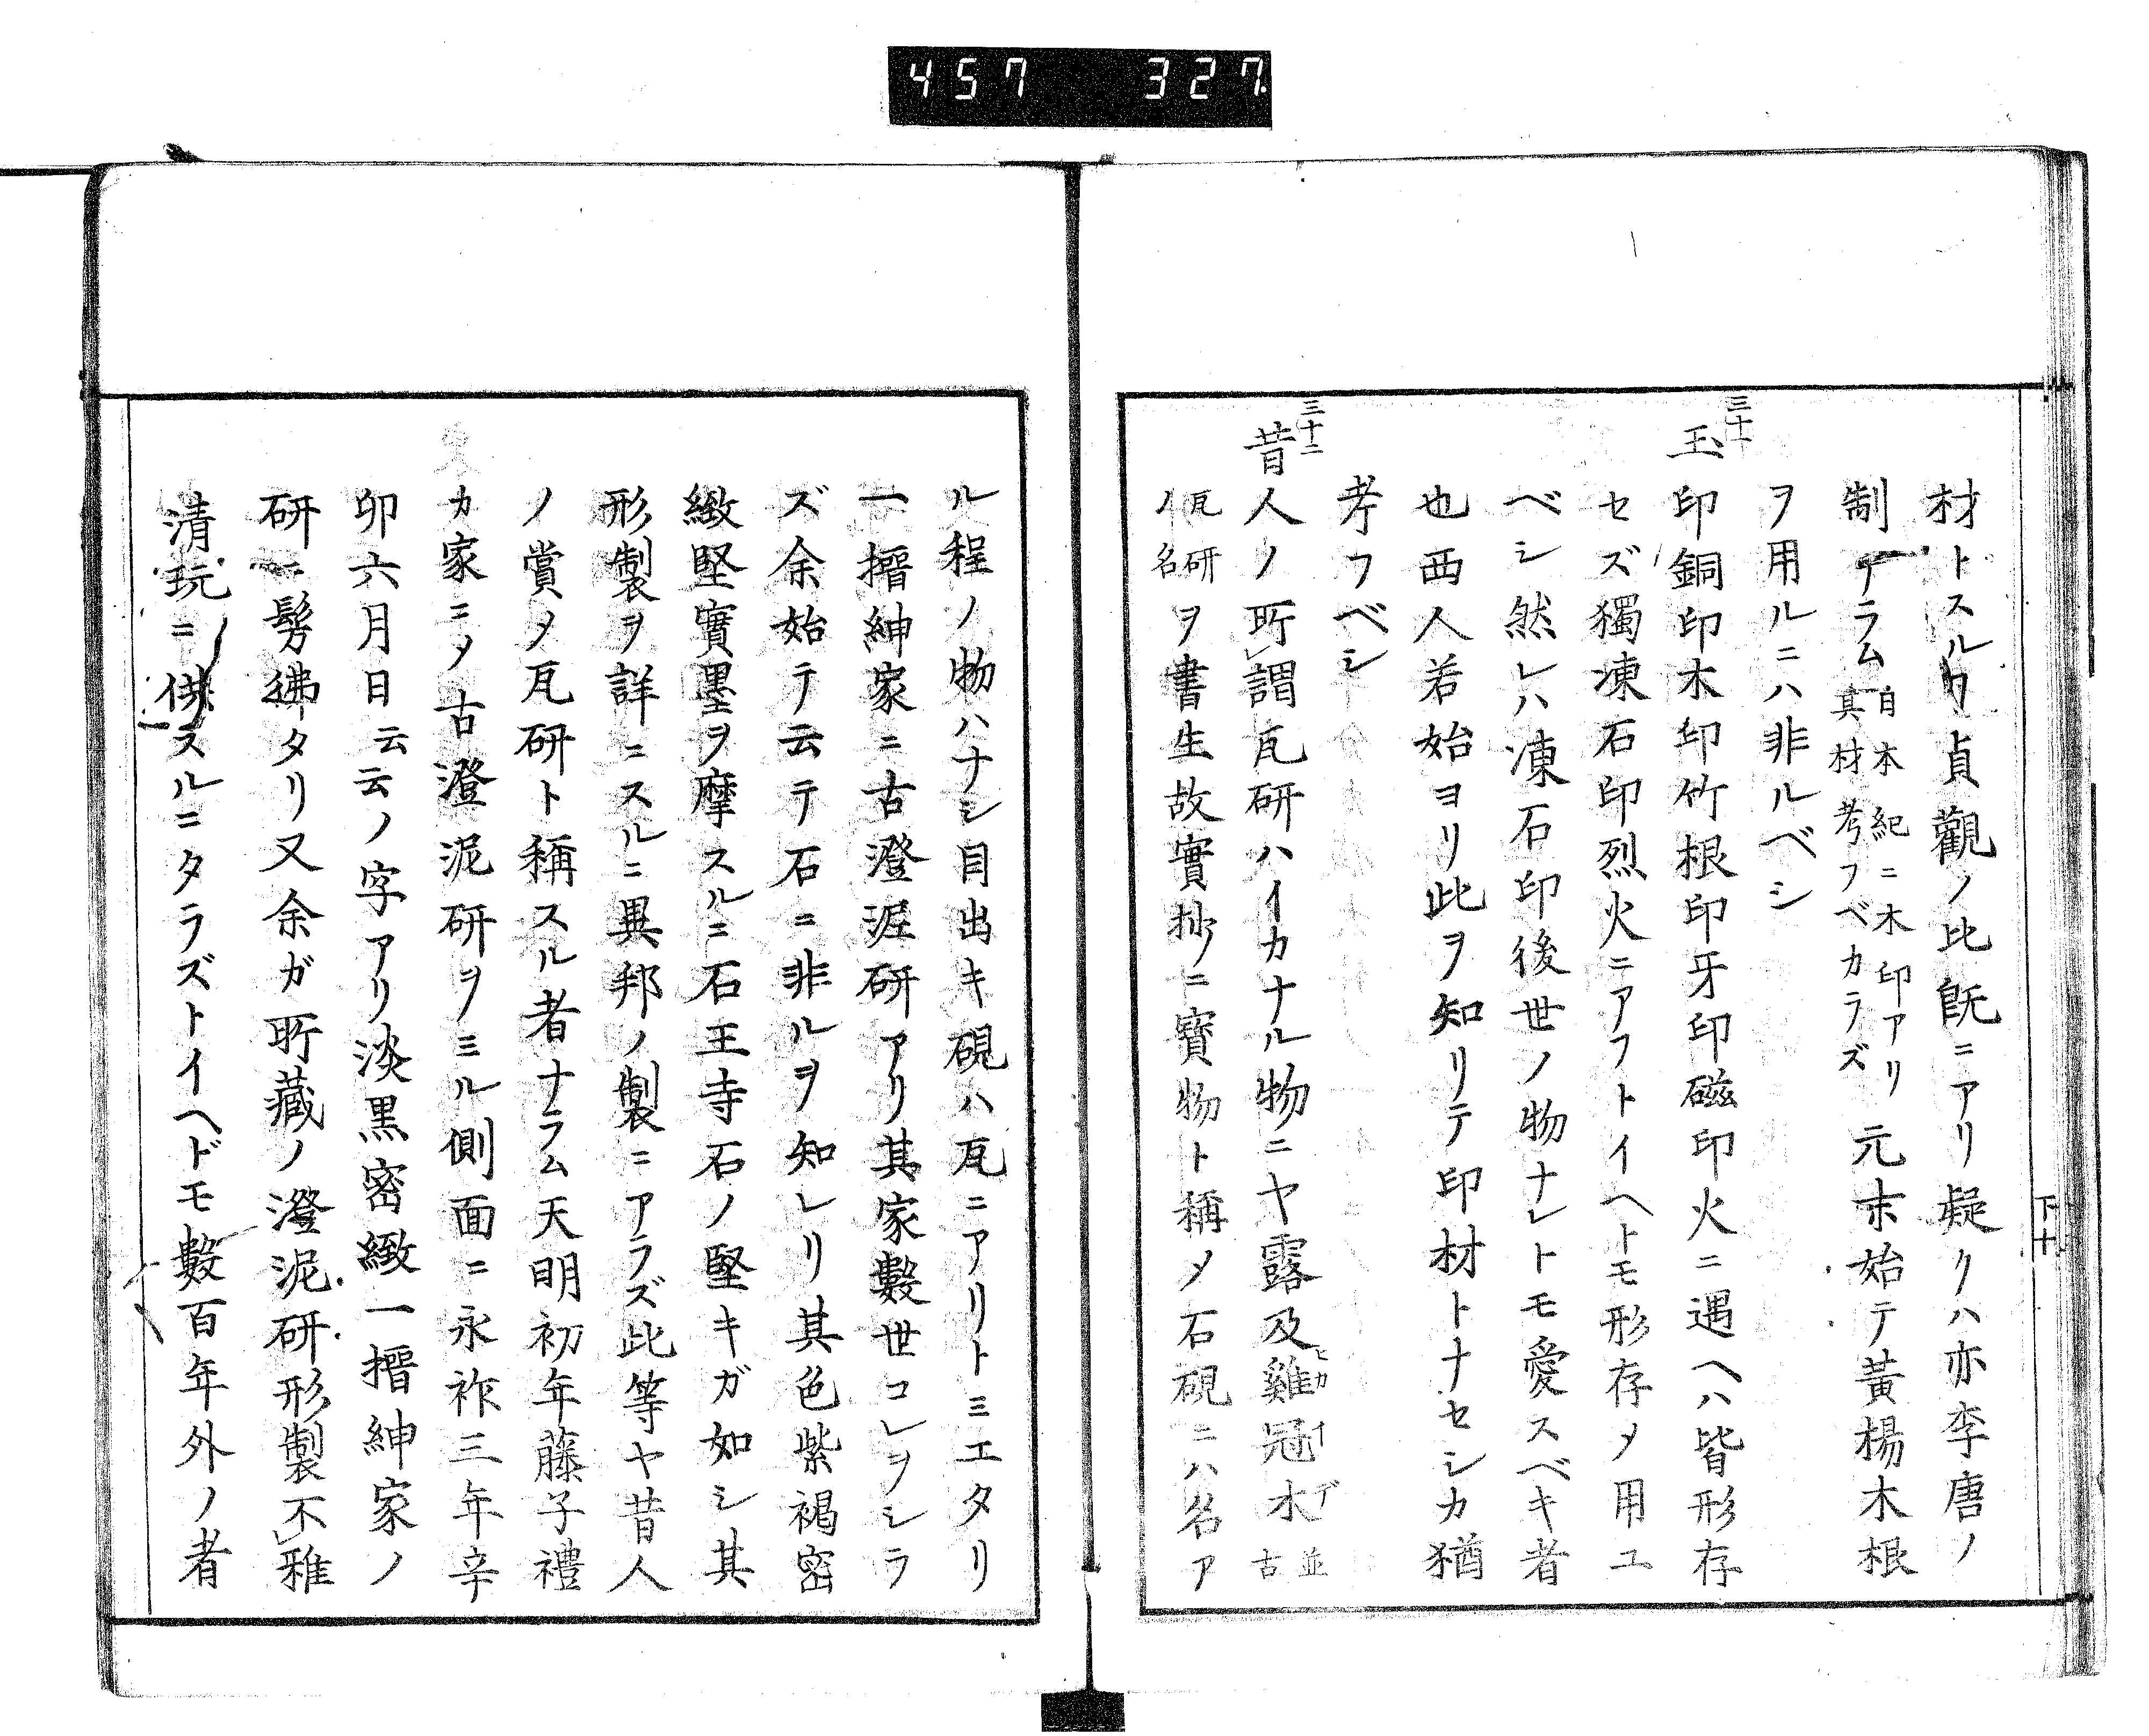 457 327
下十
材トスルヿ貞觀ノ比既ニアリ疑クハ亦李唐ノ
制アラム自本紀ニ木印アリ其材考フベカラズ元末始テ黃楊木根
ヲ用ルニハ非ルベシ
三十一
玉印銅印木印竹根印牙印磁印火ニ遇ヘハ皆形存
セズ獨凍石印烈火ニアフトイヘトモ形存メ用ユ
ベシ然レハ凍石印後世ノ物ナレトモ愛スベキ者
也西人若始ヨリ此ヲ知リテ印材トナセシカ猶
考フベシ
三十二
昔人ノ所謂瓦研ハイカナル物ニヤ露及雞冠木ヒカイデ並古
瓦研ノ名ヲ書生故實抄ニ寶物ト稱メ石硯ニハ名ア
ル程ノ物ハナシ目出キ硯ハ瓦ニアリトミエタリ
一搢紳家ニ古澄泥研アリ其家數世コレヲシラ
ズ余始テ云テ石ニ非ルヲ知レリ其色紫褐密
緻堅實墨ヲ摩スルニ石王寺石ノ堅キガ如シ其
形製ヲ詳ニスルニ異邦ノ製ニアラズ此等ヤ昔人
ノ賞メ瓦研ト稱スル者ナラム天明初年藤子禮
カ家ニメ古澄泥研ヲミル側面ニ永祚三年辛
卯六月日云云ノ字アリ淡黒密緻一搢紳家ノ
研ニ髣彿タリ又余ガ所藏ノ澄泥研形製不雅
清玩ニ供スルニタラズトイヘドモ數百年外ノ者